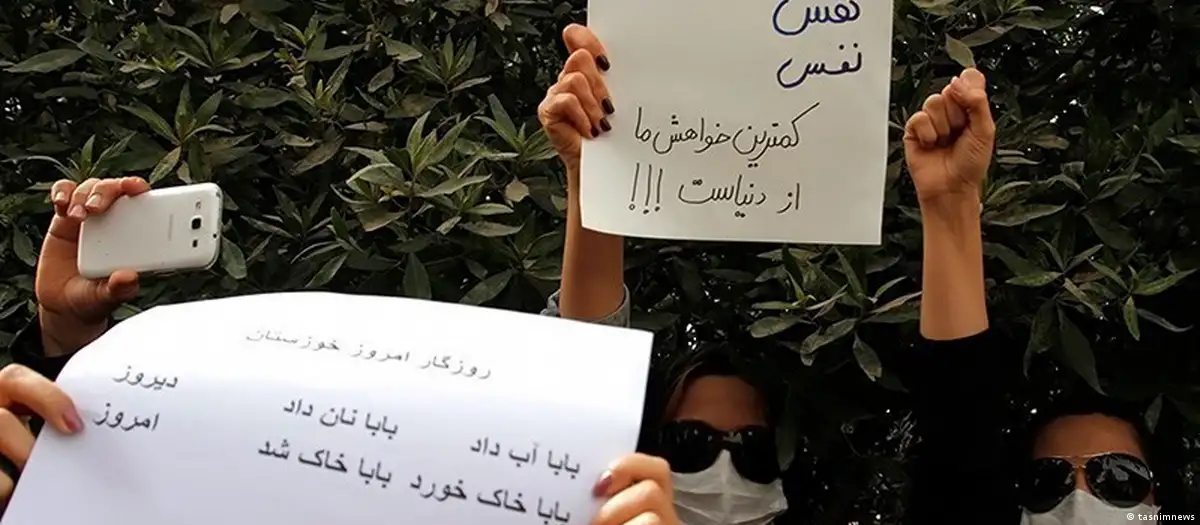 نفس
نفس
کمترین خواهش ما
از دنیاست !!!
روزگار امروز خوزستان
بابا آب داد بابا نان داد دیروز
بابا خاک خورد بابا خاک شد امروز
SAMSUNG
© tasnimnews